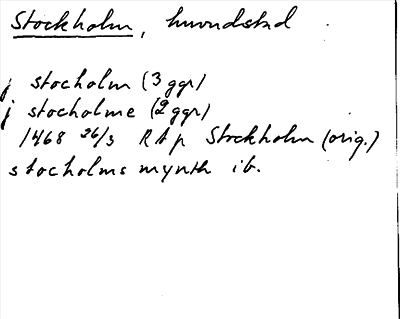 Stockholm, huvudstad
j stocholm (3 ggr)
j stocholme (2 ggr)
1468 26/3 RAp Stockholm (orig.)
stocholms mynth ib.